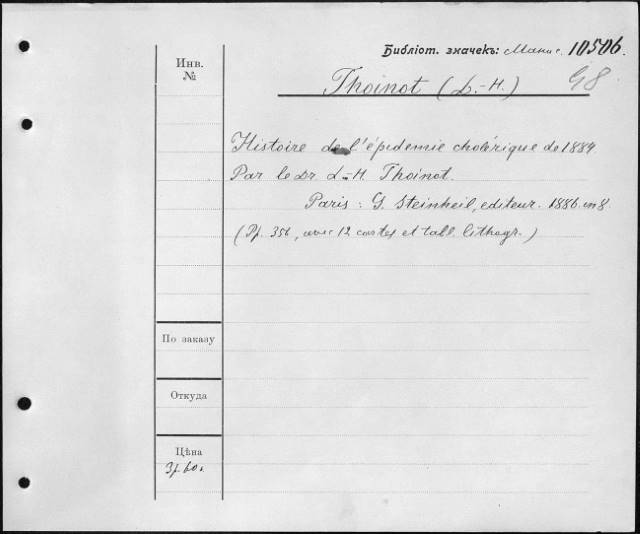 Библіот. значекъ: 10506.
Инв.
№
Thoinot (L.-H.) G8
Histoire de l'épidemie cholérique de 1884.
Par le Dr. L.-H. Thoinot.
Paris: G. Steinheil, editeur. 1886. in 8.
(Pp. 356, avec 12 cartes et tabl. lithogr.)
По заказу
Откуда
Цѣна
3р. 60к.